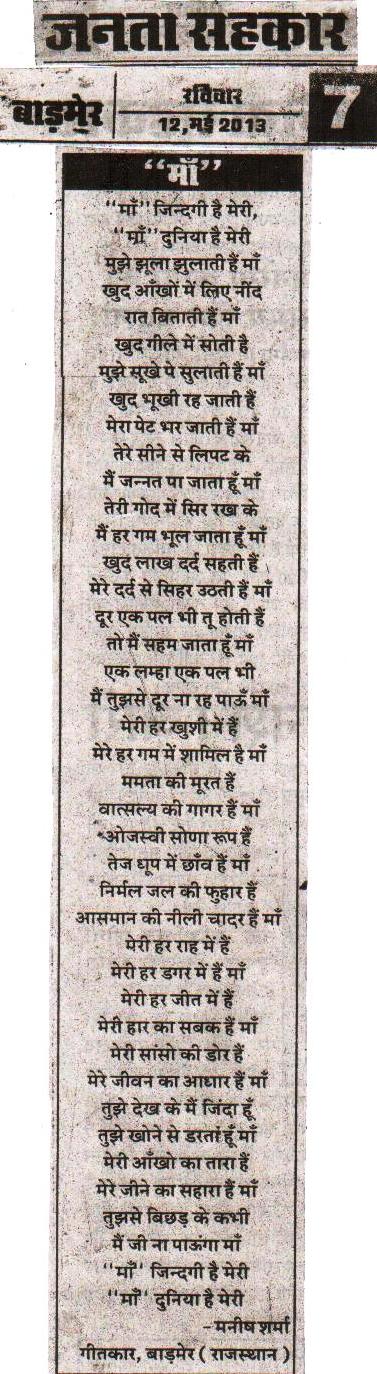 जनता सहकार
बाड़मेर
रविवार
12,मई 2013
7
“माँ”
“माँ” जिन्दगी है मेरी,
“माँ” दुनिया है मेरी
मुझे झूला झुलाती हैं माँ
खुद आँखों में लिए नींद
रात बिताती हैं माँ
खुद गीले में सोती है
मुझे सूखे पे सुलाती हैं माँ
खुद भूखी रह जाती हैं
मेरा पेट भर जाती हैं माँ
तेरे सीने से लिपट के
मैं जन्नत पा जाता हूँ माँ
तेरी गोद में सिर रख के
मैं हर गम भूल जाता हूँ माँ
खुद लाख दर्द सहती हैं
मेरे दर्द से सिहर उठती हैं माँ
दूर एक पल भी तू होती हैं
तो मैं सहम जाता हूँ माँ
एक लम्हा एक पल भी
मैं तुझसे दूर ना रह पाऊँ माँ
मेरी हर खुशी में हैं
मेरे हर गम में शामिल है माँ
ममता की मूरत हैं
वात्सल्य की गागर हैं माँ
ओजस्वी सोणा रूप हैं
तेज धूप में छाँव हैं माँ
निर्मल जल की फुहार हैं
आसमान की नीली चादर हैं माँ
मेरी हर राह में हैं
मेरी हर डगर में हैं माँ
मेरी हर जीत में हैं
मेरी हार का सबक हैं माँ
मेरी सांसो की डोर हैं
मेरे जीवन का आधार हैं माँ
तुझे देख के मैं जिंदा हूँ
तुझे खोने से डरता हूँ माँ
मेरी आँखो का तारा हैं
मेरे जीने का सहारा हैं माँ
तुझसे बिछड़ के कभी
मैं जी ना पाऊंगा माँ
“माँ” जिन्दगी है मेरी
“माँ” दुनिया है मेरी
-मनीष शर्मा
गीतकार, बाड़मेर ( राजस्थान )